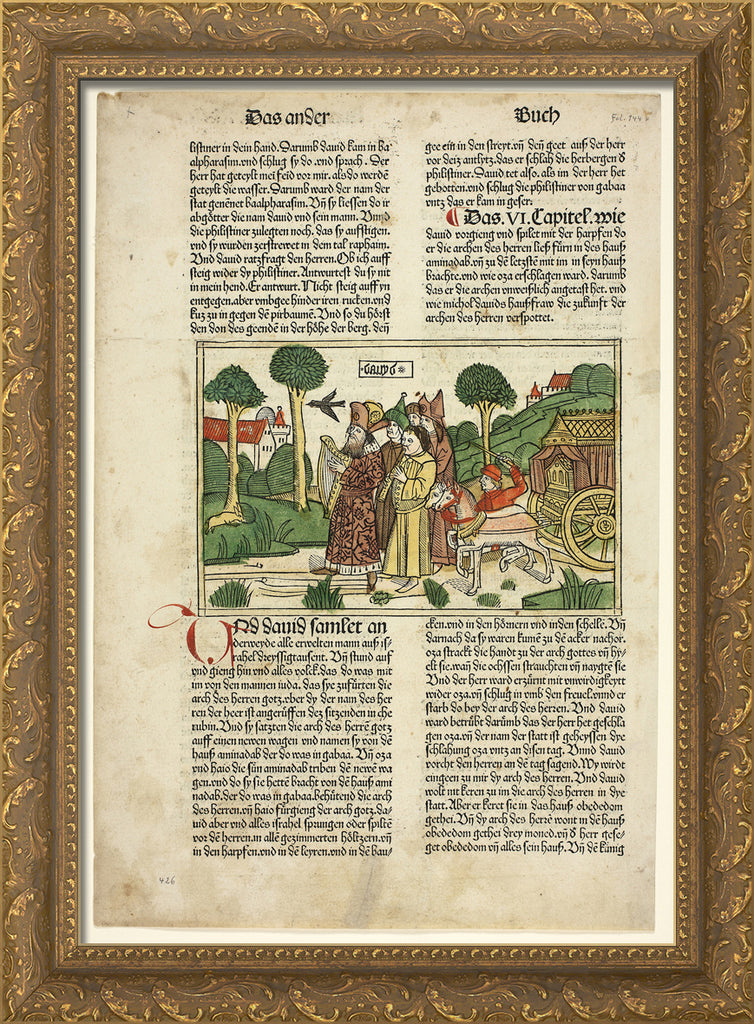 Das ander Buch
Fol. 144
listiner in dein hand. Darumb dauid kam in ba
alpharasim.vnd schlug sy do .vnd sprach . Der
herr hat geteylt mei feid vor mir. als do werdē
geteylt die wasser. Darumb ward der nam der
stat genēnet baalpharasim. Vn̄ sy liessen do ir
abgötter die nam dauid vnd sein mann. Vnnd
die philistiner zulegten noch. das sy aufstigen.
vnd sy wurden zerstrewet in dem tal raphaim.
Vnd dauid ratzfragt den herren. Ob ich auff
steig wider dy philistiner. Antwurtest du sy nit
in mein hend. Er antwurt. Nicht steig auff yn
entgegen.aber vmbgee hinder iren rucken.vnd
kuz zu in gegen dē pirbaumē. Vnd so du hörst
den don des geendē in der höhe der berg. deñ
gee ein in den streyt.vn̄ deñ geet auß der herr
vor deiz antlytz.das er schlah die herbergen d̄
philistiner. Dauid tet also. als im der herr het
gebotten.vnd schlug die philistiner von gabaa
vntz das er kam in geser.
Das. VI. Capitel. wie
dauid vorgieng vnd spilet mit der harpfen do
er die archen des herren ließ fürn in des hauß
aminadab.vn̄ zu dē letzstē mit im in seyn hauß
brachte.vnd wie oza erschlagen ward. darumb
das er die archen vnweißlich angetast het. vnd
wie michol dauids haußfraw die zukunft der
archen des herren verspottet.
·dauid·
Vnd dauid samlet an
derweyde alle erwelten mann auß is-
rahel dreyssigtausent. Vn̄ stund auf
vnd gieng hin vnd alles volck. das do was mit
im von den mannen iuda. das sye zufürten die
arch des herren gotz. ober dy der nam des her
ren der heer ist angerüffen dez sitzenden in che
rubin. Vnd sy satzten die arch des herrē gotz
auff einen newen wagen vnd namen sy von dē
hauß aminadab der do was in gabaa. Vn̄ oza
vnd haio die sün aminadab triben dē newē wa
gen.vnd do sy sie hettē bracht von dē hauß ami
nadab. der do was in gabaa.behütend die arch
des herren.vn̄ haio fürgieng der arch gotz.da-
uid aber vnd alles israhel sprungen oder spiltē
vor dē herren.in allē gezimmerten höltzern.vn̄
in den harpfen.vnd in dē leyren.vnd in dē bau-
cken.vnd in den hörnern vnd in den schelle. Vn̄
darnach da sy waren kumē zu dē acker nachor.
oza strackt die handt zu der arch gottes vn̄ hy-
elt sie. wañ die ochssen strauchten vn̄ naygtē sie
Vnd der herr ward erzürnt mit vnwirdigkeytt
wider oza.vn̄ schlug in vmb den freuel.vnnd er
starb do bey der arch des herren. Vnd dauid
ward betrübt darümb das der herr het geschla
gen oza.vn̄ der nam der statt ist geheyssen dye
schlahung oza vntz an disen tag. Vnnd dauid
vorcht den herren an dē tag sagend. Wy wirdt
eingeen zu mir dy arch des herren. Vnd dauid
wolt nit keren zu im die arch des herren in dye
statt. Aber er keret sie in das hauß obededom
gethei. Vn̄ dy arch des herrē wont in dē hauß
obededom gethei drey moned.vn̄ d̄ herr gese-
get obededom vn̄ alles sein hauß. Vn̄ dē künig
426